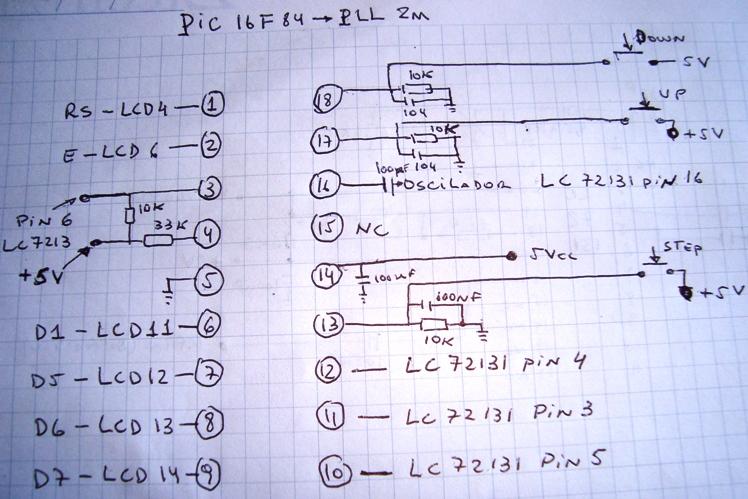 PIC 16F84 → PLL 2M
RS - LCD4 — 1
E - LCD 6 — 2
3
PIN 6
LC7213
10K
33K
4
+5V
5
D1 - LCD11 — 6
D5 - LCD12 — 7
D6 - LCD 13 — 8
D7 - LCD 14 — 9
18
10K
104
DOWN
5V
17
10K
104
UP
+5V
16
100pF
OSCILADOR LC 72131 PIN 16
15 NC
14
100NF
5Vcc
13
100NF
10K
STEP
+5V
12 — LC 72131 PIN 4
11 — LC 72131 PIN 3
10 — LC 72131 PIN 5